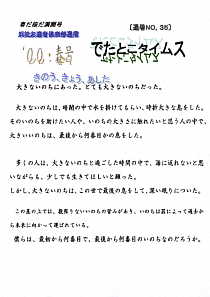 春だ春だ満開号
［通巻NO. 35］
'00:春号
でたとこタイムス
きのう、きょう、あした
大きないのちにあった。とても大きないのちだった。
大きないのちは、暗闇の中で水を掛けてもらい、時折大きな息をした。
そのいのちを助けたい人や、いのちの大きさに触れたいと思う人の中で、
大きいいのちは、最後から何番目かの息をした。
多くの人は、大きないのちと過ごした時間の中で、海に返れないと思
いながらも、少しでも生きてほしいと願った。
しかし、大きないのちは、この世で最後の息をして、深い眠りについた。
この星の上では、数限りないいのちの営みがあり、いのちは皆によって過去か
ら未来に向かって運ばれている。
僕らは、最初から何番目で、最後から何番目のいのちなのだろうか。